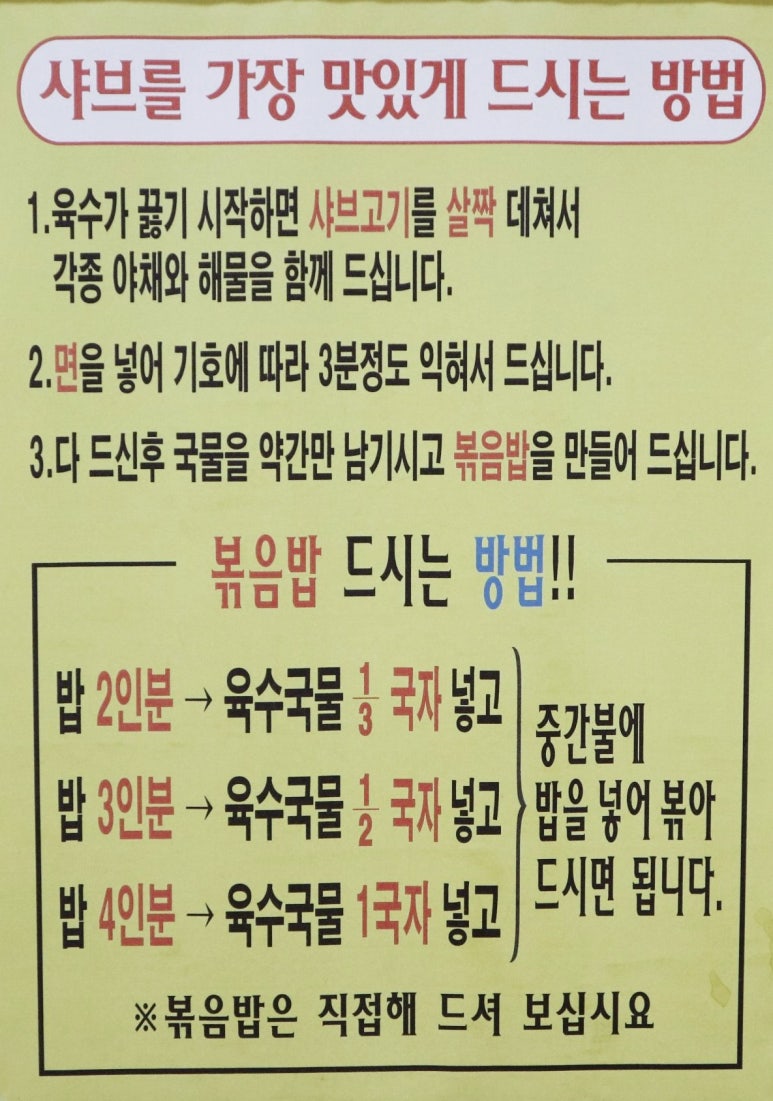 샤브를 가장 맛있게 드시는 방법
1.육수가 끓기 시작하면 샤브고기를 살짝 데쳐서
각종 야채와 해물을 함께 드십니다.
2.면을 넣어 기호에 따라 3분정도 익혀서 드십니다.
3.다 드신후 국물을 약간만 남기시고 볶음밥을 만들어 드십니다.
볶음밥 드시는 방법!!
밥 2인분 → 육수국물 1/3 국자 넣고
밥 3인분 → 육수국물 1/2 국자 넣고
밥 4인분 → 육수국물 1국자 넣고
중간불에
밥을 넣어 볶아
드시면 됩니다.
※볶음밥은 직접해 드셔 보십시요